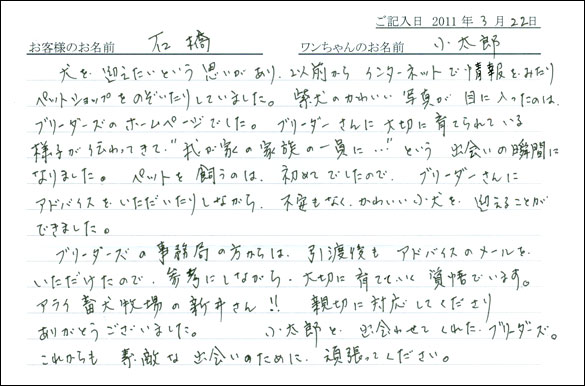 ご記入日 2011 年 3 月 22 日
お客様のお名前 石橋 ワンちゃんのお名前 小太郎
犬を迎えたいという思いがあり、以前からインターネットで情報をみたり
ペットショップをのぞいたりしていました。柴犬のかわいい写真が目に入ったのは、
ブリーダーズのホームページでした。ブリーダーさんに大切に育てられている
様子が伝わってきて、"我が家の家族の一員に…"という出会いの瞬間に
なりました。ペットを飼うのは、初めてでしたので、ブリーダーさんに
アドバイスをいただいたりしながら、不安もなく、かわいい小犬を迎えることが
できました。
ブリーダーズの事務局の方からは、引渡後もアドバイスのメールを
いただけたので、参考にしながら、大切に育てていく覚悟でいます。
アライ畜犬牧場の新井さん!! 親切に対応してくださり
ありがとうございました。 小太郎と出会わせてくれたブリーダーズ。
これからも素敵な出会いのために、頑張ってください。